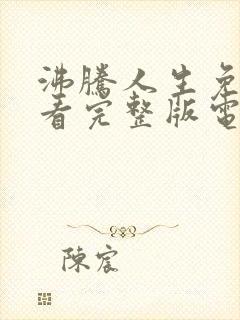 沸騰人生免
看完整版電
陳宸